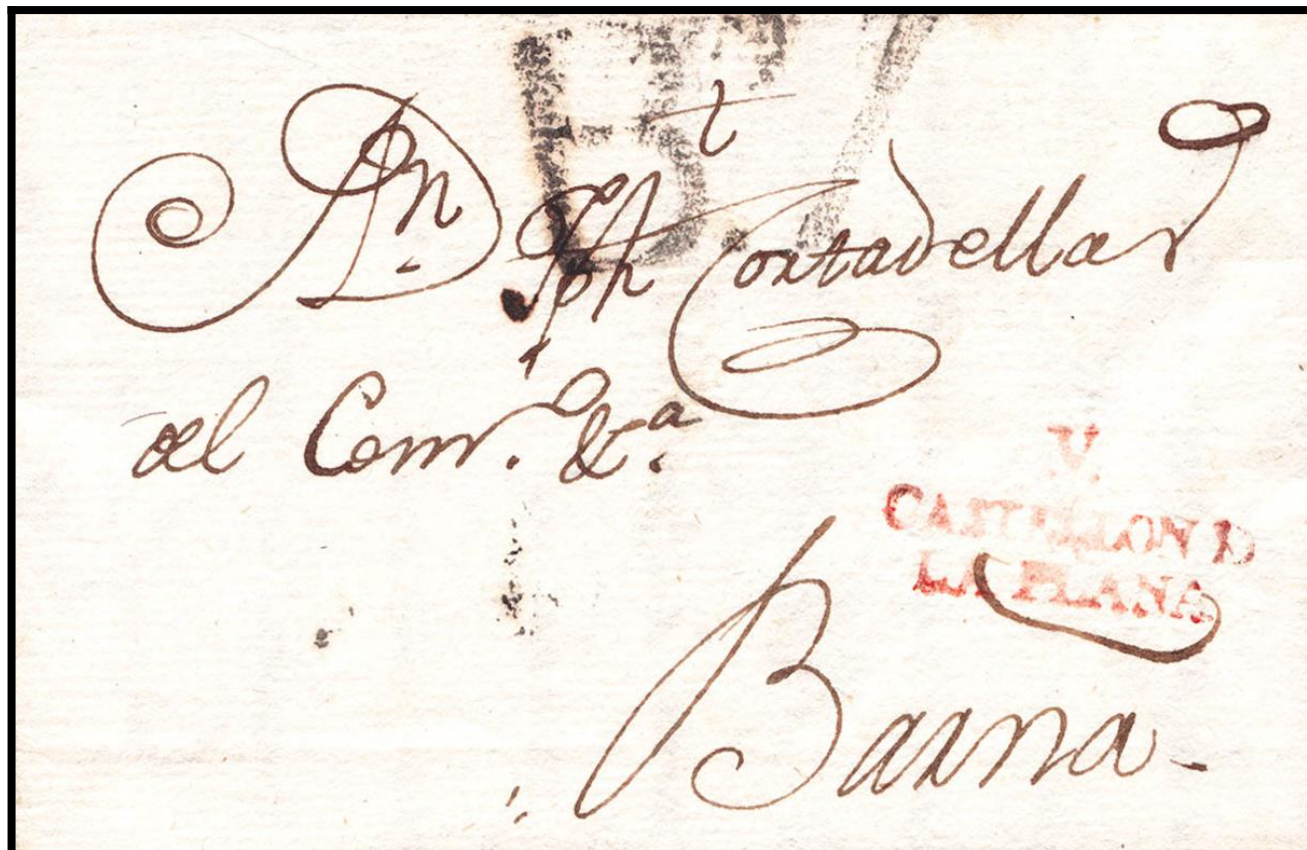 A Dn. Jph Cortadellas
del Comr. &a.
V.
CASTELLON D
LA PLANA
Barna